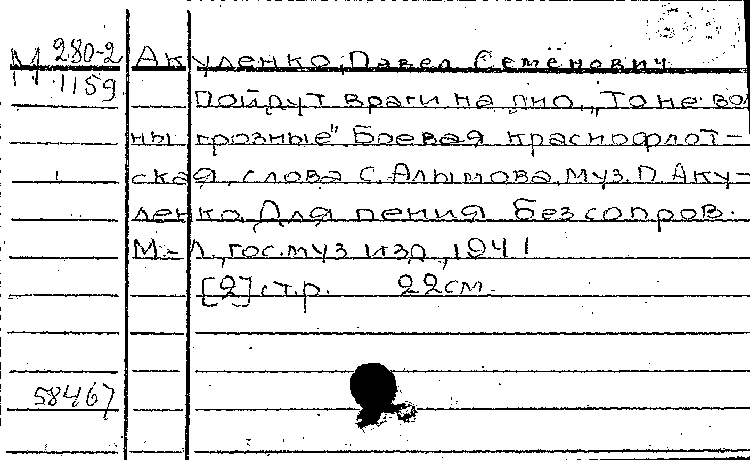 М 280-2 Акуленко, Павел Семёнович
1159
Пойдут враги на дно. „То не вол
ны грозные" Боевая краснофлот-
ская, слова С. Алымова, муз. П. Аку-
ленко. Для пения без сопров.
М-Л, гос. муз. изд., 1941
[2] стр. 22 см.
58467